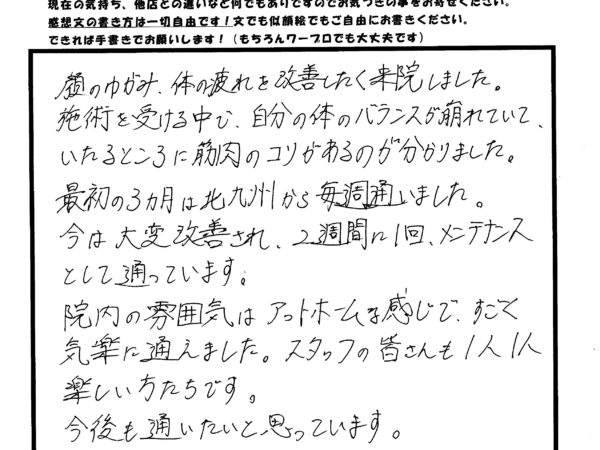 現在の気持ち、他店との違いなど何でもありですのでお気づきの事をお寄せください。
感想文の書き方は一切自由です！文でも似顔絵でもご自由にお書きください。
できれば手書きでお願いします！（もちろんワープロでも大丈夫です）
顔のゆがみ、体の疲れを改善したく来院しました。
施術を受ける中で、自分の体のバランスが崩れていて、
いたるところに筋肉のコリがあるのが分かりました。
最初の3カ月は北九州から毎週通いました。
今は大変改善され、2週間に1回、メンテナンス
として通っています。
院内の雰囲気はアットホームな感じで、すごく
気楽に通えました。スタッフの皆さんも1人1人
楽しい方たちです。
今後も通いたいと思っています。